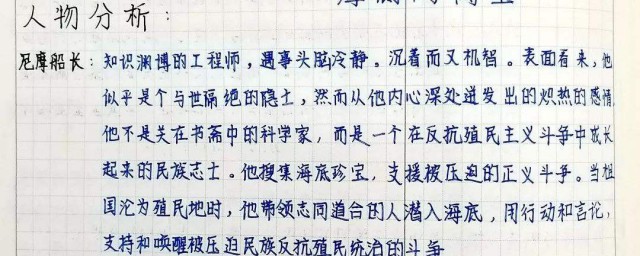 人物分析：
尼摩船长：知识渊博的工程师，遇事头脑冷静。沉着而又机智。表面看来，他
似乎是个与世隔绝的隐士，然而从他内心深处迸发出的炽热的感情
他不是关在书斋中的科学家，而是一个在反抗殖民主义斗争中成长
起来的民族志士。他搜集海底珍宝，支援被压迫的正义斗争。当祖
国沦为殖民地时，他带领志同道合的人潜入海底，用行动和言论，
支持和唤醒被压迫民族反抗殖民统治的斗争